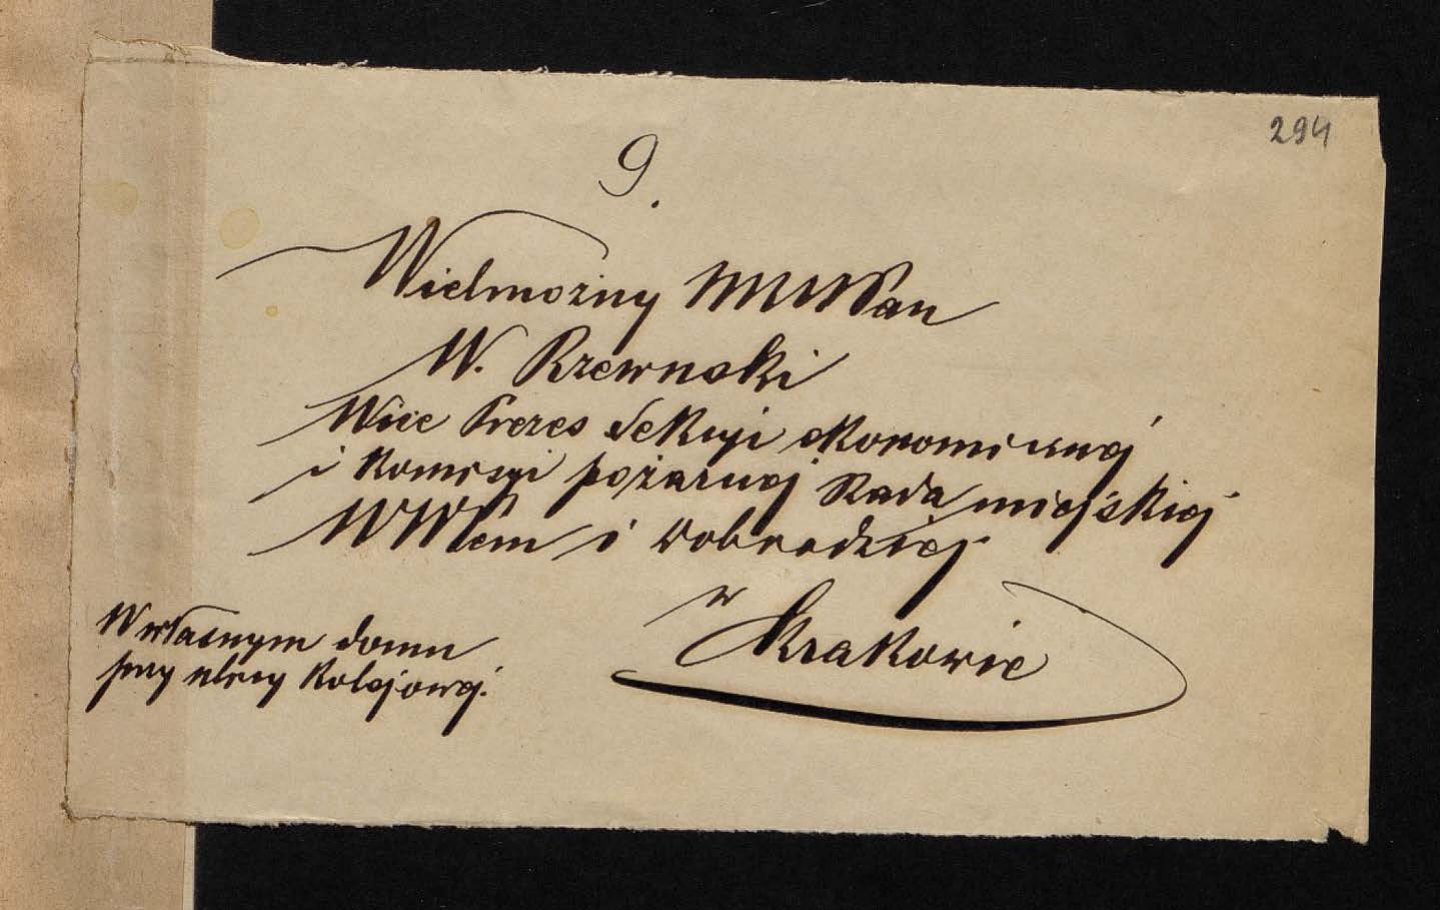 294
9.
Wielmożny WWPan
W. Rzewuski
Wice Prezes Sekcyi ekonomicznej
i Komisyi pożarnej Rada miejskiej
i Dobrodziej
w Krakowie
W własnym domu
przy ulicy Kolejowej.